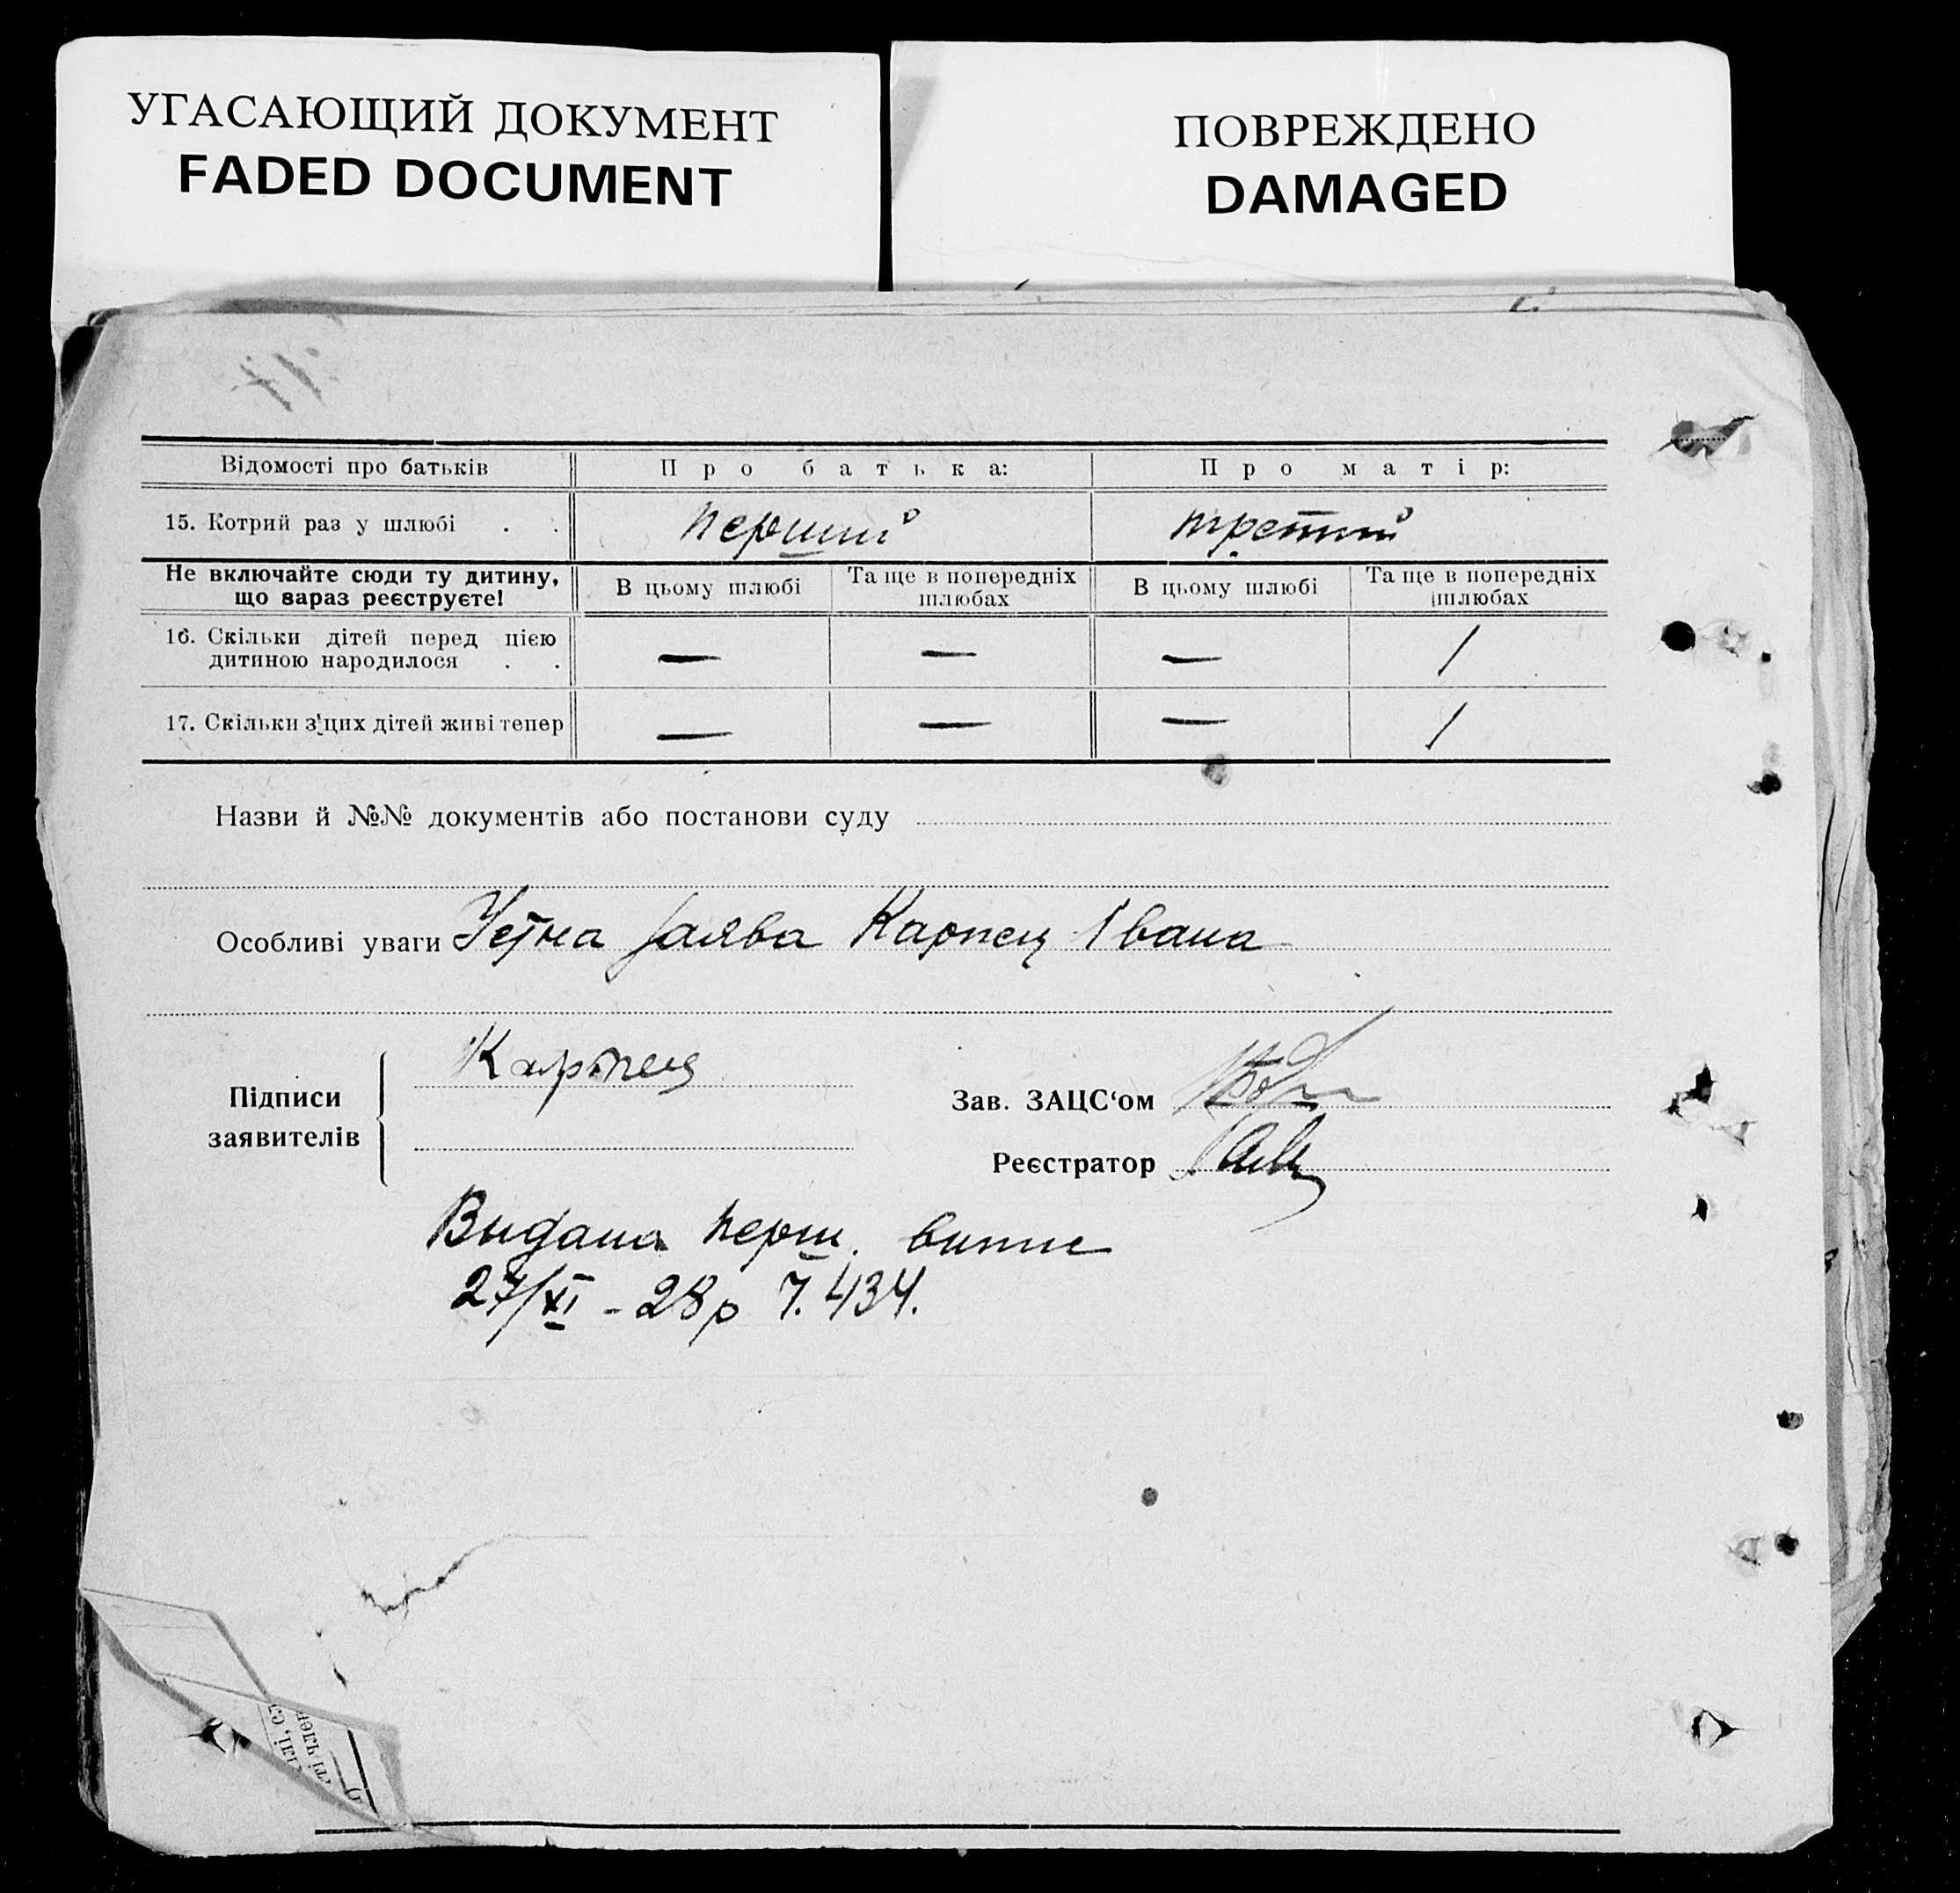 УГАСАЮЩИЙ ДОКУМЕНТ
FADED DOCUMENT
ПОВРЕЖДЕНО
DAMAGED
Відомості про батьків Про батька: Про матір:
15. Котрий раз у шлюбі . . перший третий
Не включайте сюди ту дитину, що зараз реєструєте! В цьому шлюбі Та ще в попередніх шлюбах В цьому шлюбі Та ще в попередніх шлюбах
16. Скільки дітей перед цією
дитиною народилося . . — — — 1
17. Скільки з цих дітей живі тепер — — — 1
Назви й №№ документів або постанови суду
Особливі уваги Устна заява Карпец Івана
Підписи заявителів Карпец
Зав. ЗАЦС‘ом
Реєстратор
Видана перш. випис
27/XI - 28р 7.434.